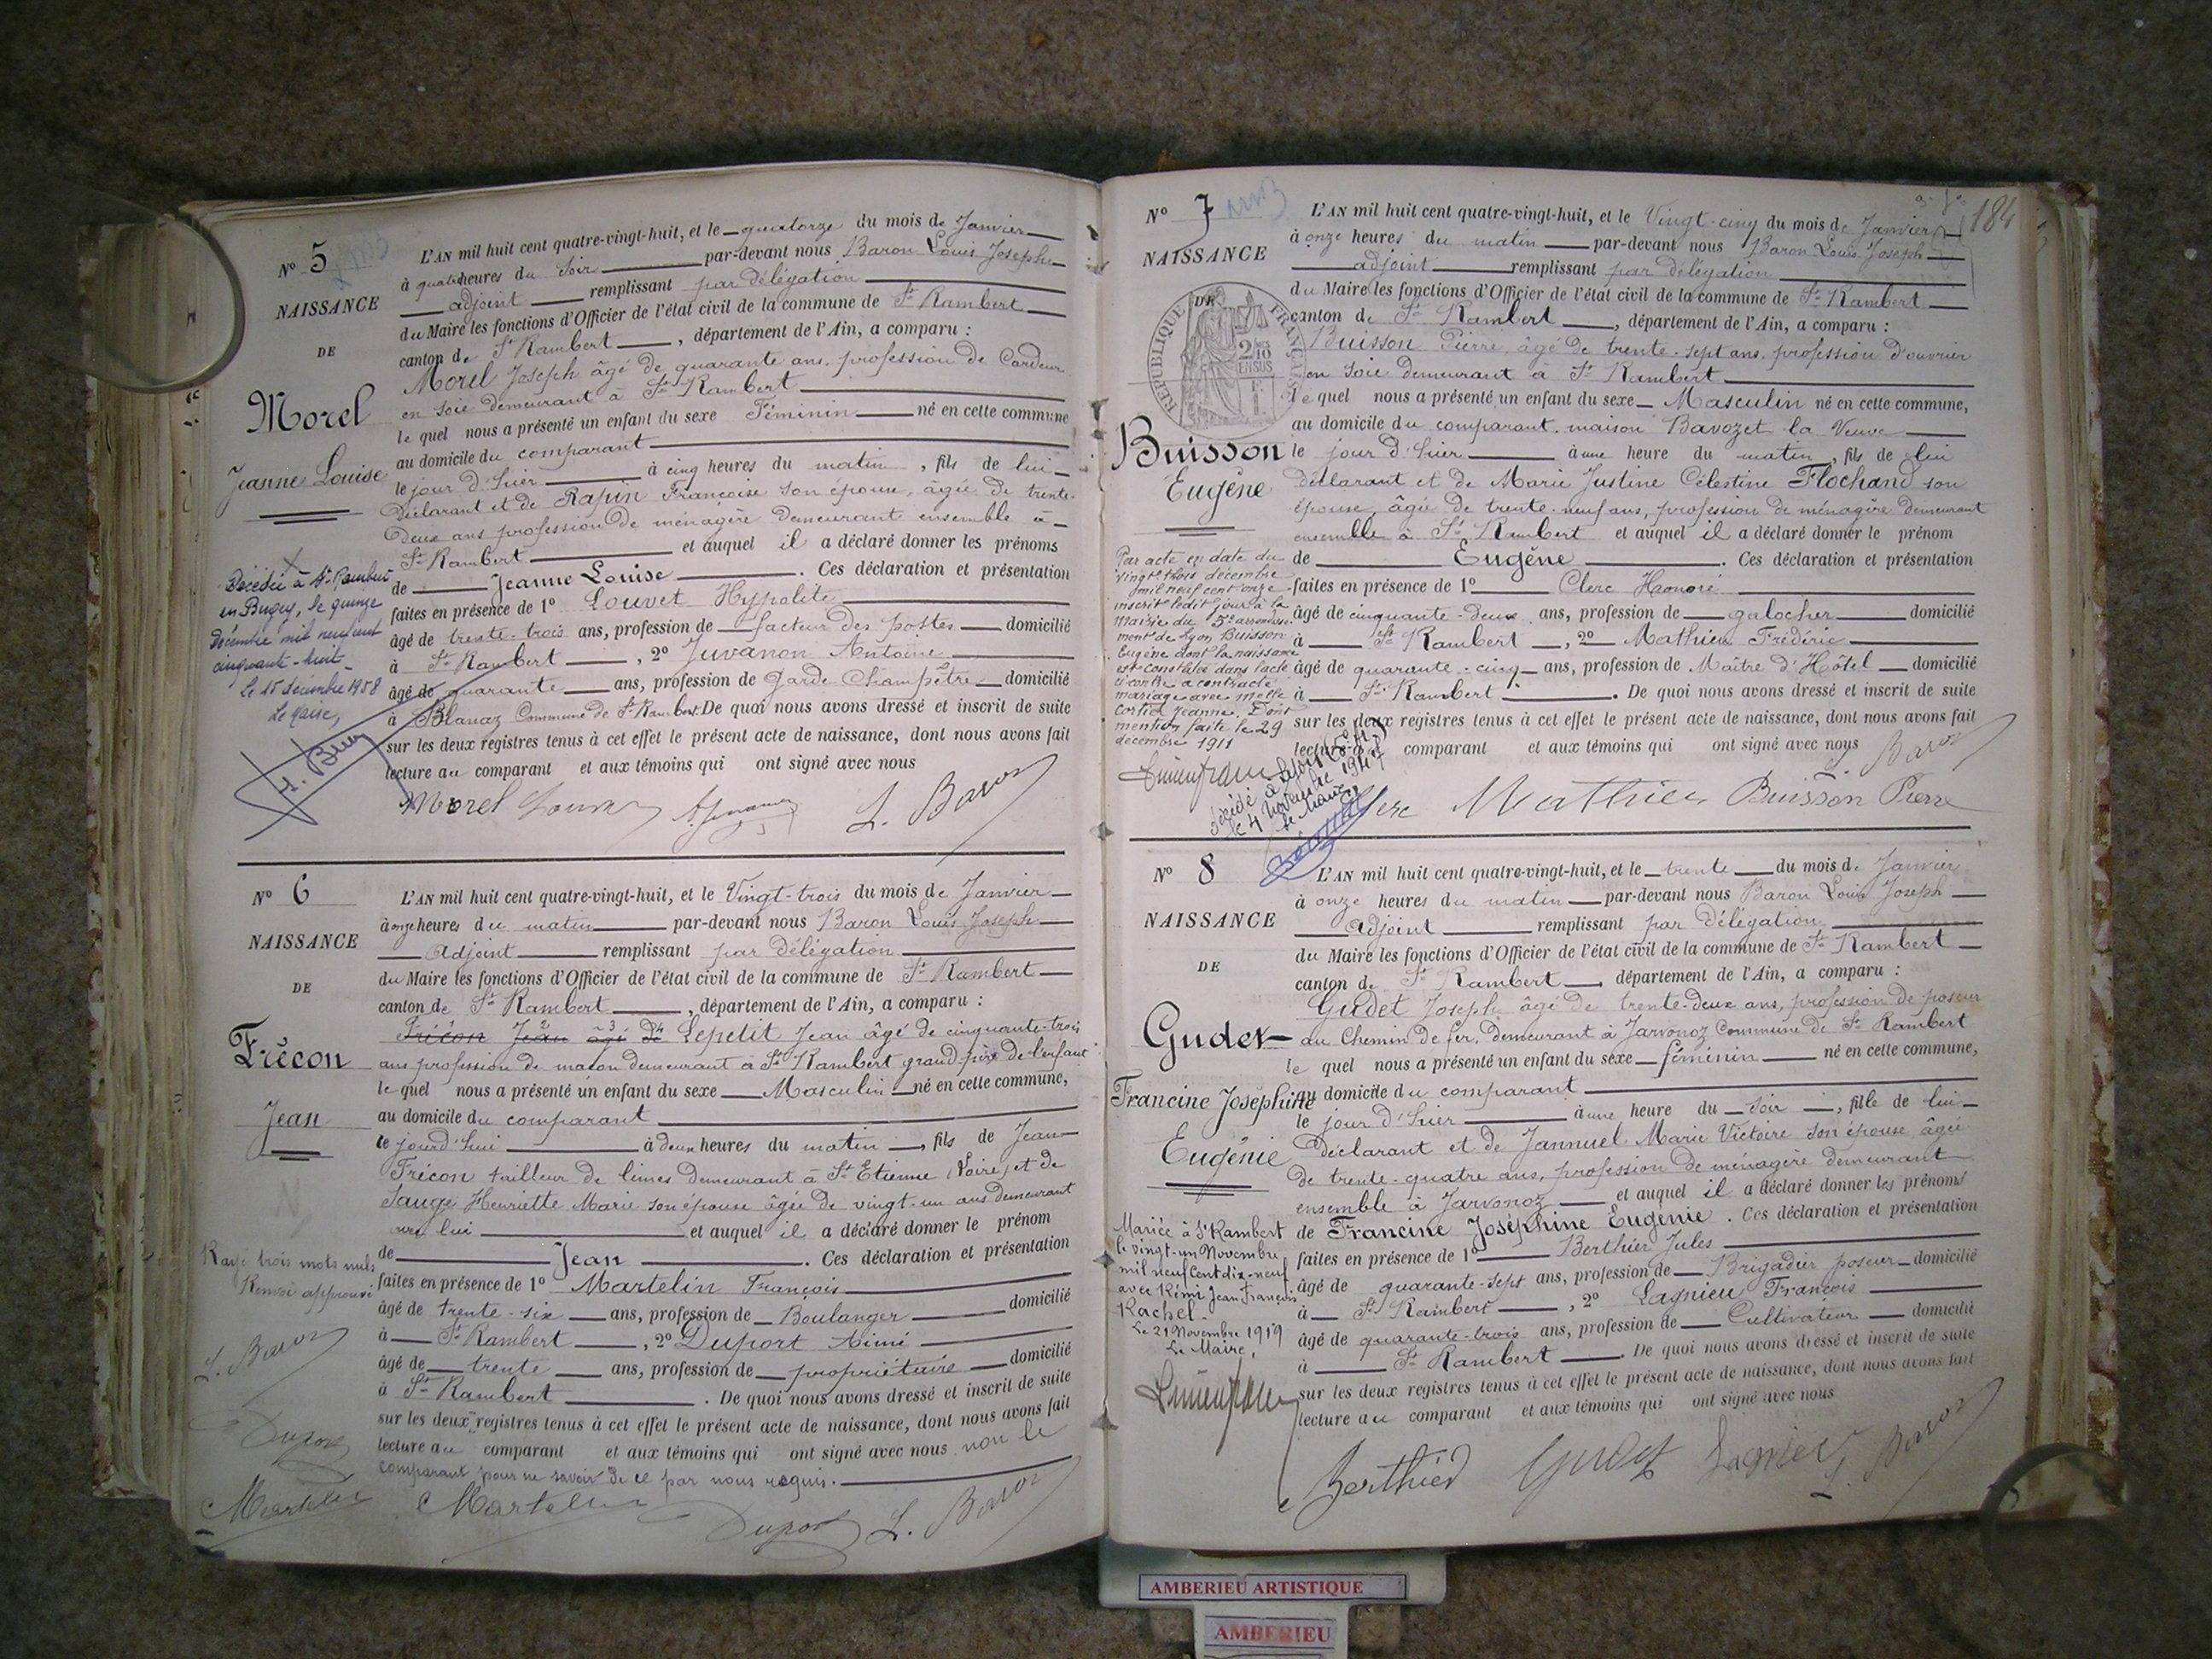 N° 5
NAISSANCE
DE
Morel
Jeanne Louise
Décédée à St Rambert
en Bugey, le quinze
décembre mil neuf cent
cinquante-huit
Le 15 décembre 1958
Le Maire,
L'AN mil huit cent quatre-vingt-huit, et le quatorze du mois de Janvier
à quatre heures du soir par-devant nous Baron Louis Joseph
adjoint remplissant par délégation
du Maire les fonctions d'Officier de l'état civil de la commune de St Rambert
canton de St Rambert, département de l'Ain, a comparu :
Morel Joseph âgé de quarante ans, profession de Cardeur
en soie demeurant à St Rambert
le quel nous a présenté un enfant du sexe Féminin né en cette commune
au domicile du comparant
le jour d'hier à cinq heures du matin, fils de lui
déclarant et de Rapin Françoise son épouse, âgée de trente-
deux ans profession de ménagère demeurant ensemble à
St Rambert et auquel il a déclaré donner les prénoms
de Jeanne Louise. Ces déclaration et présentation
faites en présence de 1° Louvet Hypolite
âgé de trente-trois ans, profession de facteur des postes domicilié
à St Rambert, 2° Juvanon Antoine
âgé de quarante ans, profession de Garde Champêtre domicilié
à Blanaz Commune de St Rambert. De quoi nous avons dressé et inscrit de suite
sur les deux registres tenus à cet effet le présent acte de naissance, dont nous avons fait
lecture au comparant et aux témoins qui ont signé avec nous
Morel L. Baron
N° 6
NAISSANCE
DE
Frécon
Jean
Rayé trois mots nuls
Renvoi approuvé
L. Baron
Duport
Martelin
L'AN mil huit cent quatre-vingt-huit, et le Vingt-trois du mois de Janvier
à onze heures du matin par-devant nous Baron Louis Joseph
Adjoint remplissant par délégation
du Maire les fonctions d'Officier de l'état civil de la commune de St Rambert
canton de St Rambert, département de l'Ain, a comparu :
Frécon Jean âgé de Lepetit Jean âgé de cinquante-trois
ans profession de maçon demeurant à St Rambert grand père de l'enfant
le quel nous a présenté un enfant du sexe Masculin né en cette commune,
au domicile du comparant
le jourd'hui à deux heures du matin, fils de Jean
Frécon tailleur de limes demeurant à St Etienne (Loire) et de
Sauge Henriette Marie son épouse âgée de vingt-un ans demeurant
avec lui et auquel il a déclaré donner le prénom
de Jean. Ces déclaration et présentation
faites en présence de 1° Martelin François
âgé de trente-six ans, profession de Boulanger domicilié
à St Rambert, 2° Duport Aimé
âgé de trente ans, profession de propriétaire domicilié
à St Rambert. De quoi nous avons dressé et inscrit de suite
sur les deux registres tenus à cet effet le présent acte de naissance, dont nous avons fait
lecture au comparant et aux témoins qui ont signé avec nous non le
comparant pour ne savoir de ce par nous requis.
Martelin Duport L. Baron
184
N° 7
NAISSANCE
DE
RÉPUBLIQUE FRANÇAISE
2/10 EN SUS
Buisson
Eugène
Par acte en date du
vingt trois décembre
mil neuf cent onze
inscrit ledit jour à la
mairie du 5e arrondisse-
ment de Lyon Buisson
Eugène dont la naissance
est constatée dans l'acte
ci contre a contracté
mariage avec Melle
Cortier Jeanne. Dont
mention faite le 29
décembre 1911
décédé à Lyon
le 4 Novembre 1947
Le Maire
L'AN mil huit cent quatre-vingt-huit, et le Vingt-cinq du mois de Janvier
à onze heures du matin par-devant nous Baron Louis Joseph
adjoint remplissant par délégation
du Maire les fonctions d'Officier de l'état civil de la commune de St Rambert
canton de St Rambert, département de l'Ain, a comparu :
Buisson Pierre, âgé de trente-sept ans, profession d'ouvrier
en soie demeurant à St Rambert
le quel nous a présenté un enfant du sexe Masculin né en cette commune,
au domicile du comparant, maison Bavozet la Veuve
le jour d'hier à une heure du matin, fils de lui
déclarant et de Marie Justine Célestine Flochand son
épouse, âgée de trente-neuf ans, profession de ménagère demeurant
ensemble à St Rambert et auquel il a déclaré donner le prénom
de Eugène. Ces déclaration et présentation
faites en présence de 1° Clerc Honoré
âgé de cinquante-deux ans, profession de galocher domicilié
à St Rambert, 2° Mathieu Frédéric
âgé de quarante-cinq ans, profession de Maître d'Hôtel domicilié
à St Rambert. De quoi nous avons dressé et inscrit de suite
sur les deux registres tenus à cet effet le présent acte de naissance, dont nous avons fait
lecture au comparant et aux témoins qui ont signé avec nous
L. Baron
Clerc Mathieu Buisson Pierre
N° 8
NAISSANCE
DE
Gudet
Francine Joséphine
Eugénie
Mariée à St Rambert
le vingt-un Novembre
mil neuf cent dix-neuf
avec Rémi Jean François
Rachel.
Le 21 Novembre 1919
Le Maire,
L'AN mil huit cent quatre-vingt-huit, et le trente du mois de Janvier
à onze heures du matin par-devant nous Baron Louis Joseph
Adjoint remplissant par délégation
du Maire les fonctions d'Officier de l'état civil de la commune de St Rambert
canton de St Rambert, département de l'Ain, a comparu :
Gudet Joseph âgé de trente-deux ans, profession de poseur
au Chemin de fer, demeurant à Javornoz Commune de St Rambert
le quel nous a présenté un enfant du sexe féminin né en cette commune,
au domicile du comparant
le jour d'hier à une heure du soir, fille de lui
Déclarant et de Jannuel Marie Victoire son épouse âgée
de trente-quatre ans, profession de ménagère demeurant
ensemble à Javornoz et auquel il a déclaré donner les prénoms
de Francine Joséphine Eugénie. Ces déclaration et présentation
faites en présence de 1° Berthier Jules
âgé de quarante-sept ans, profession de Brigadier poseur domicilié
à St Rambert, 2° Lagnieu François
âgé de quarante-trois ans, profession de Cultivateur domicilié
à St Rambert. De quoi nous avons dressé et inscrit de suite
sur les deux registres tenus à cet effet le présent acte de naissance, dont nous avons fait
lecture au comparant et aux témoins qui ont signé avec nous
Berthier Gudet Lagnieu L. Baron
AMBERIEU ARTISTIQUE
AMBERIEU